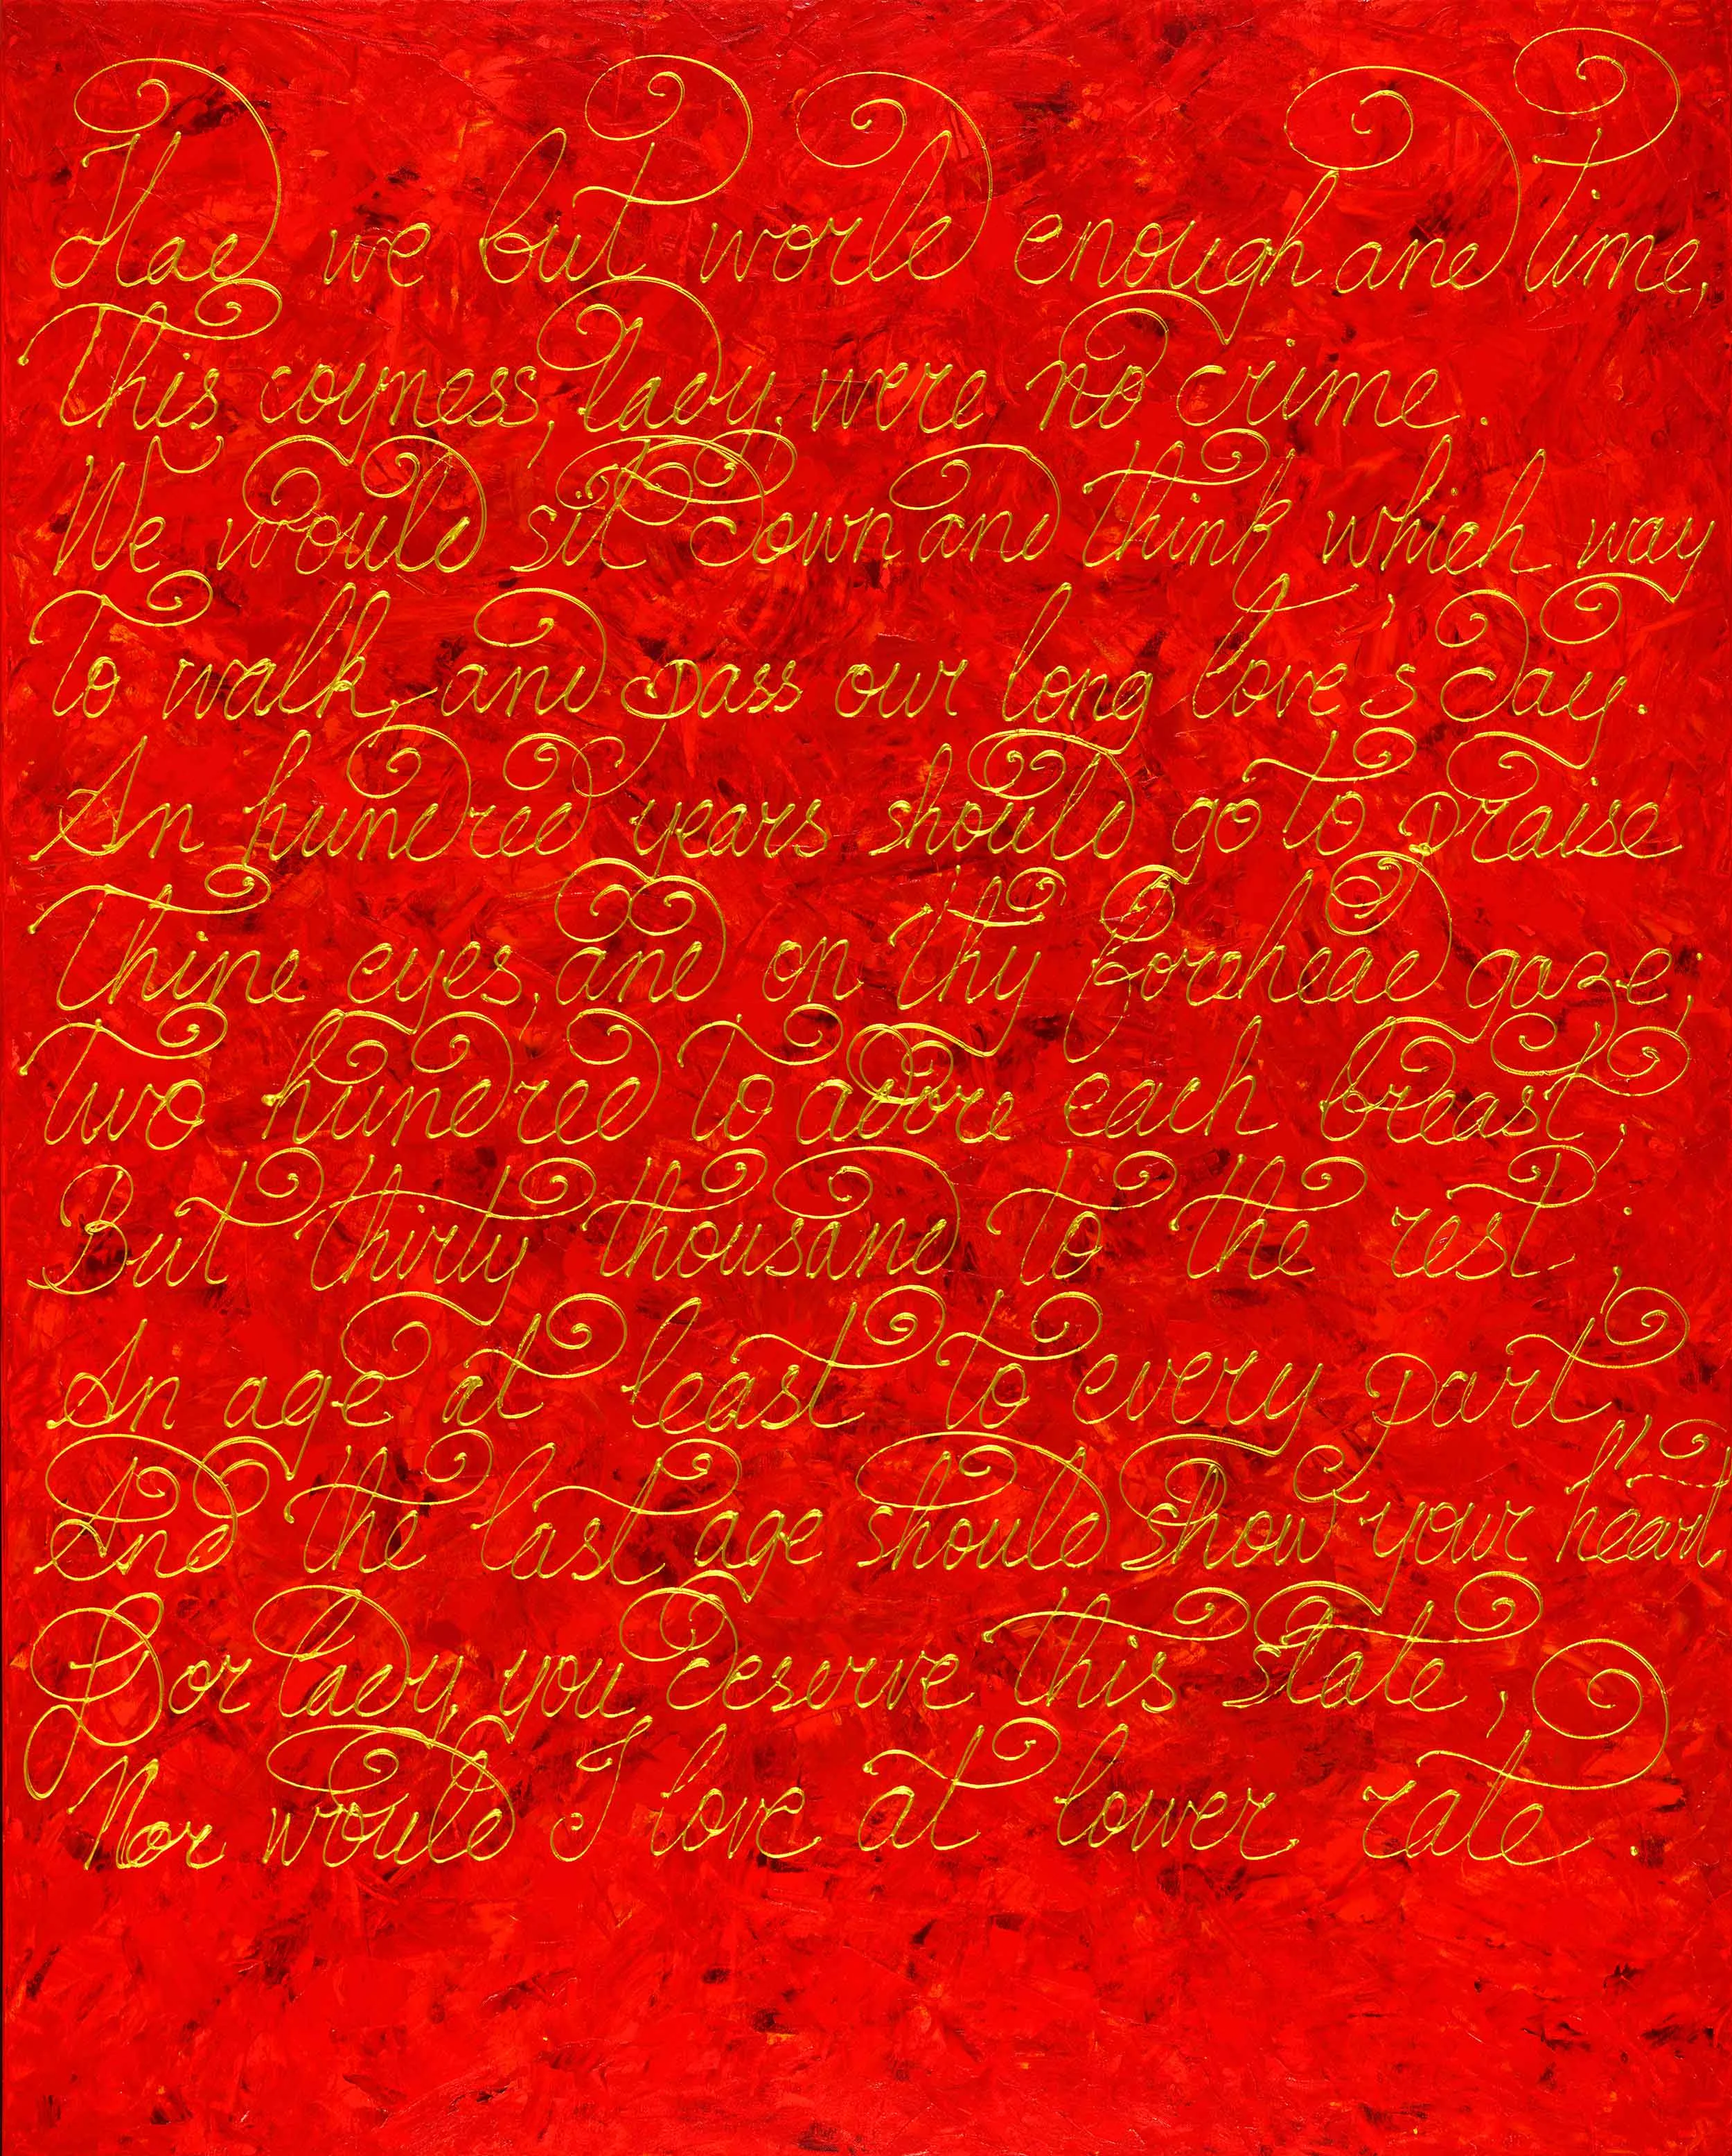 Had we but world enough and time,
This coyness, lady, were no crime.
We would sit down and think which way
To walk, and pass our long love's day.
An hundred years should go to praise
Thine eyes, and on thy forehead gaze;
Two hundred to adore each breast,
But thirty thousand to the rest;
An age at least to every part,
And the last age should show your heart.
For lady, you deserve this state,
Nor would I love at lower rate.